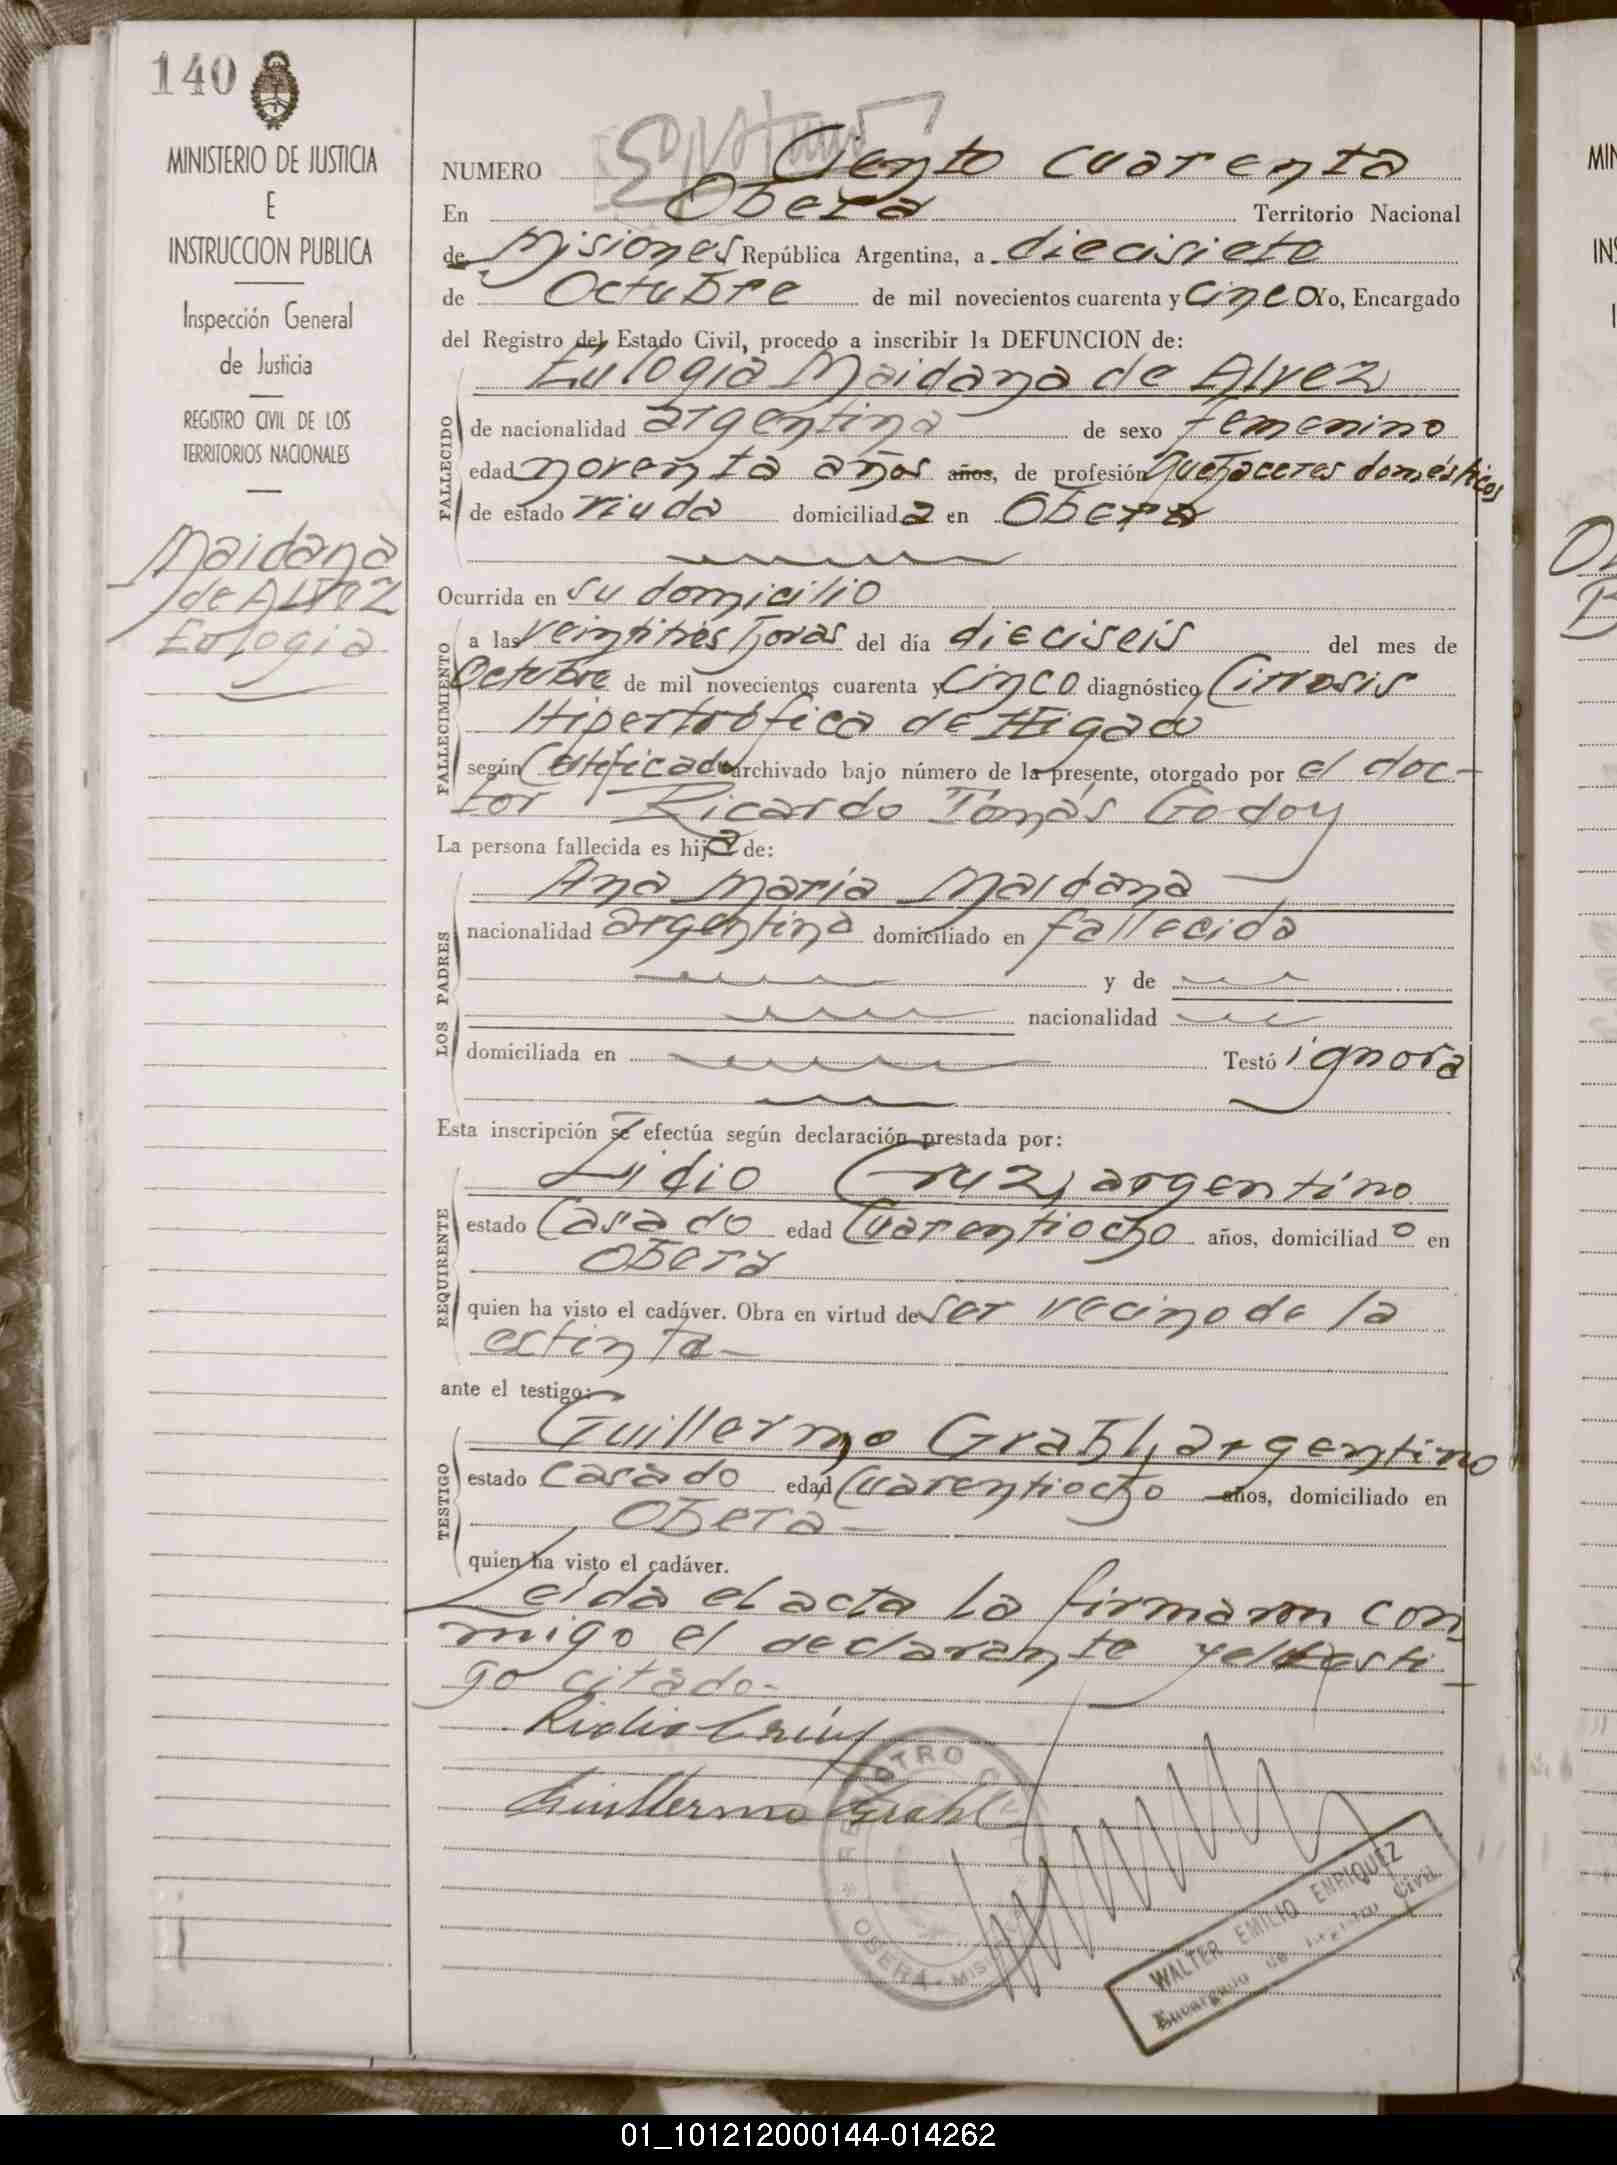 140
MINISTERIO DE JUSTICIA
E
INSTRUCCION PUBLICA
Inspección General
de Justicia
REGISTRO CIVIL DE LOS
TERRITORIOS NACIONALES
Maidana
de Alvez
Eulogia
NUMERO Ciento cuarenta
En Oberá Territorio Nacional
de Misiones República Argentina, a diecisiete
de Octubre de mil novecientos cuarenta y cinco Yo, Encargado
del Registro del Estado Civil, procedo a inscribir la DEFUNCION de:
FALLECIDO
Eulogia Maidana de Alvez
de nacionalidad argentina de sexo femenino
edad noventa años años, de profesión Quehaceres domésticos
de estado viuda domiciliada en Oberá
Ocurrida en su domicilio
FALLECIMIENTO
a las veintitrés horas del día dieciseis del mes de
Octubre de mil novecientos cuarenta y cinco diagnóstico Cirrosis
Hipertrófica de Higado
según Certificado archivado bajo número de la presente, otorgado por el doc-
tor Ricardo Tomás Godoy
La persona fallecida es hija de:
LOS PADRES
Ana Maria Maidana
nacionalidad argentina domiciliado en fallecida
y de
nacionalidad
domiciliada en Testó ignora
Esta inscripción se efectúa según declaración prestada por:
REQUIRENTE
Lidio Cruz, argentino
estado Casado edad Cuarentiocho años, domiciliado en
Oberá
quien ha visto el cadáver. Obra en virtud de ser vecino de la
extinta-
ante el testigo:
TESTIGO
Guillermo Grahl, argentino
estado casado edad Cuarentiocho años, domiciliado en
Oberá-
quien ha visto el cadáver.
Leída el acta la firmaron con
migo el declarante y el testi-
go citado.-
Lidio Cruz
Guillermo Grahl
REGISTRO CIVIL
OBERÁ - MISIONES
WALTER EMILIO ENRIQUEZ
Encargado de Registro Civil
01_101212000144-014262